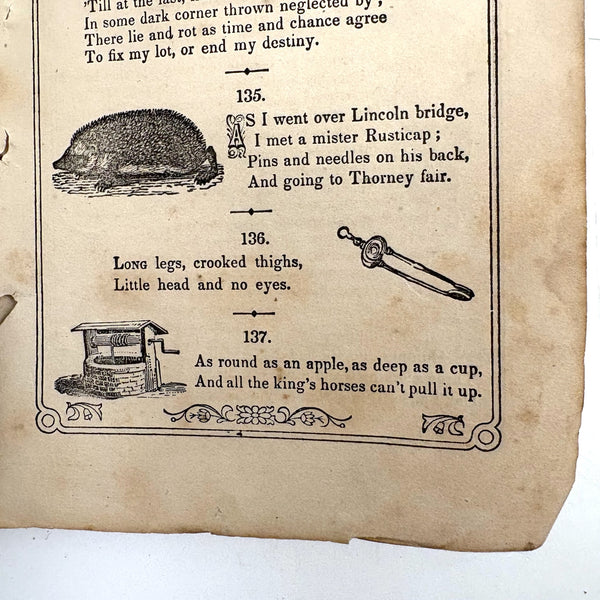 'Till at the last,
In some dark corner thrown neglected by,
There lie and rot as time and chance agree
To fix my lot, or end my destiny.
135.
AS I went over Lincoln bridge,
I met a mister Rusticap;
Pins and needles on his back,
And going to Thorney fair.
136.
LONG legs, crooked thighs,
Little head and no eyes.
137.
As round as an apple, as deep as a cup,
And all the king's horses can't pull it up.